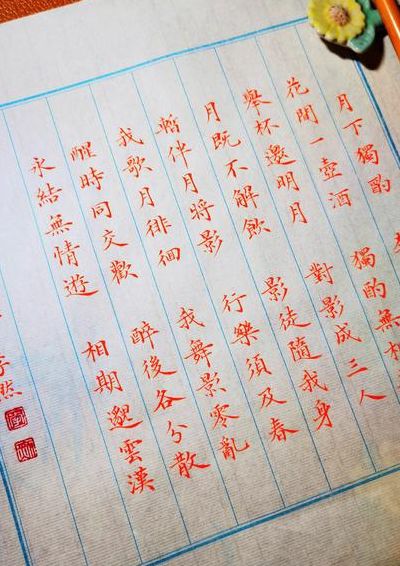 月下獨酌
花間一壺酒 獨酌無相
舉杯邀明月 對影成三人
月既不解飲 影徒隨我身
暫伴月將影 行樂須及春
我歌月徘徊 我舞影零亂
醒時同交歡 醉後各分散
永結無情遊 相期邈雲漢